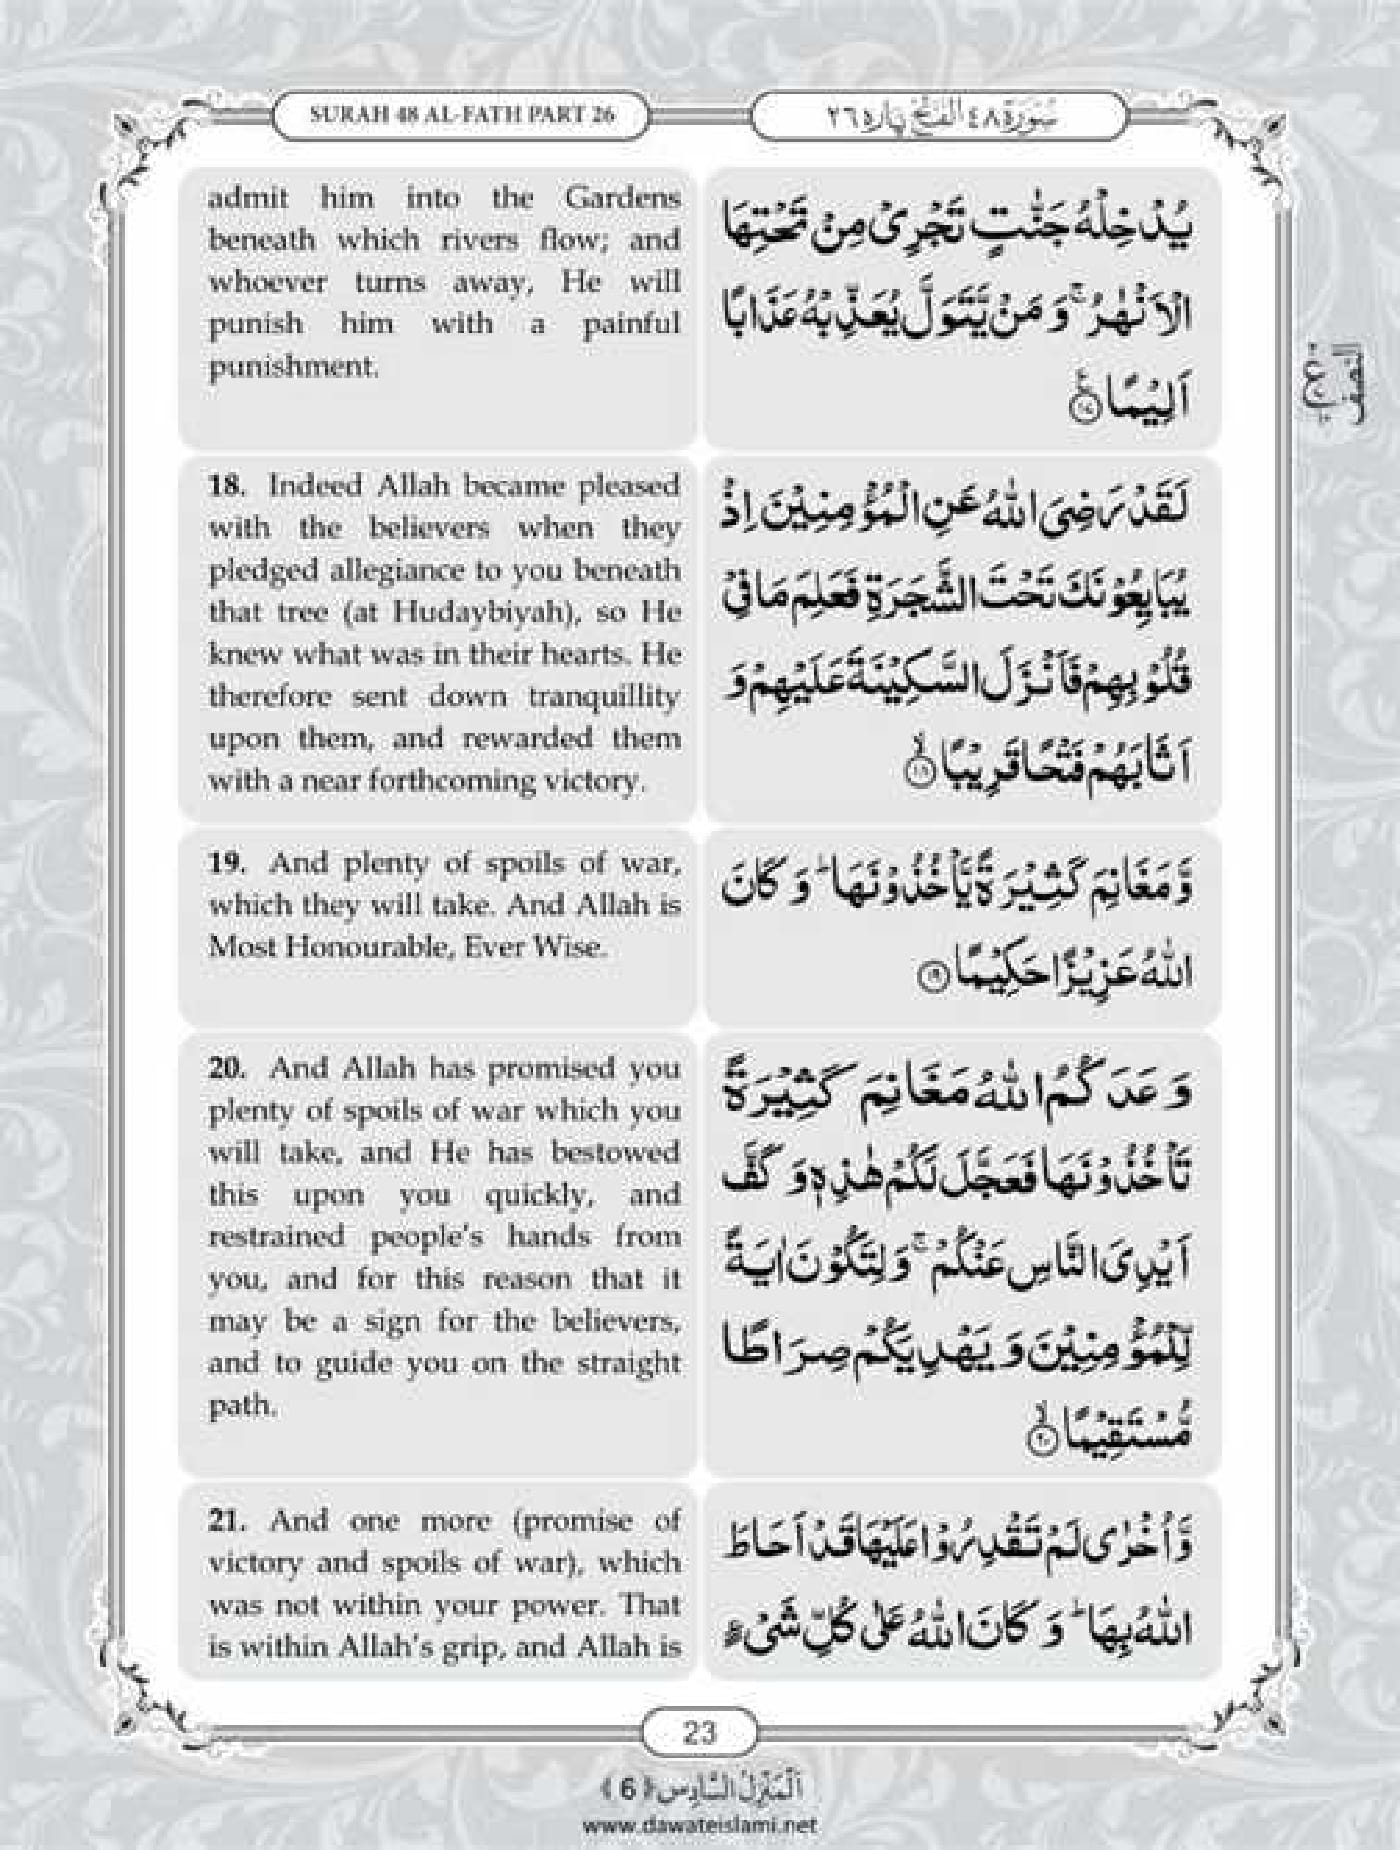 SURAH 48 AL-FATH PART 26
سُوْرَة ٤٨ الفَتْحُ پاره ٢٦
admit him into the Gardens
beneath which rivers flow; and
whoever turns away, He will
punish him with a painful
punishment.
يُدْخِلْهُ جَنّٰتٍ تَجْرِیْ مِنْ تَحْتِهَا
الْاَنْهٰرُ ۚ وَ مَنْ یَّتَوَلَّ یُعَذِّبْهُ عَذَابًا
اَلِیْمًا ﴿۱۷﴾
النصف
18. Indeed Allah became pleased
with the believers when they
pledged allegiance to you beneath
that tree (at Hudaybiyah), so He
knew what was in their hearts. He
therefore sent down tranquillity
upon them, and rewarded them
with a near forthcoming victory.
لَقَدْ رَضِیَ اللّٰهُ عَنِ الْمُؤْمِنِیْنَ اِذْ
یُبَایِعُوْنَكَ تَحْتَ الشَّجَرَةِ فَعَلِمَ مَا فِیْ
قُلُوْبِهِمْ فَاَنْزَلَ السَّكِیْنَةَ عَلَیْهِمْ وَ
اَثَابَهُمْ فَتْحًا قَرِیْبًا ۙ﴿۱۸﴾
19. And plenty of spoils of war,
which they will take. And Allah is
Most Honourable, Ever Wise.
وَّ مَغَانِمَ كَثِیْرَةً یَّاْخُذُوْنَهَا ؕ وَ كَانَ
اللّٰهُ عَزِیْزًا حَكِیْمًا ﴿۱۹﴾
20. And Allah has promised you
plenty of spoils of war which you
will take, and He has bestowed
this upon you quickly, and
restrained people's hands from
you, and for this reason that it
may be a sign for the believers,
and to guide you on the straight
path.
وَعَدَكُمُ اللّٰهُ مَغَانِمَ كَثِیْرَةً
تَاْخُذُوْنَهَا فَعَجَّلَ لَكُمْ هٰذِهٖ وَ كَفَّ
اَیْدِیَ النَّاسِ عَنْكُمْ ۚ وَ لِتَكُوْنَ اٰیَةً
لِّلْمُؤْمِنِیْنَ وَ یَهْدِیَكُمْ صِرَاطًا
مُّسْتَقِیْمًا ۙ﴿۲۰﴾
21. And one more (promise of
victory and spoils of war), which
was not within your power. That
is within Allah's grip, and Allah is
وَّ اُخْرٰی لَمْ تَقْدِرُوْا عَلَیْهَا قَدْ اَحَاطَ
اللّٰهُ بِهَا ؕ وَ كَانَ اللّٰهُ عَلٰی كُلِّ شَیْءٍ
23
اَلْمَنْزِلُ السَّادِس ﴿6﴾
www.dawateislami.net